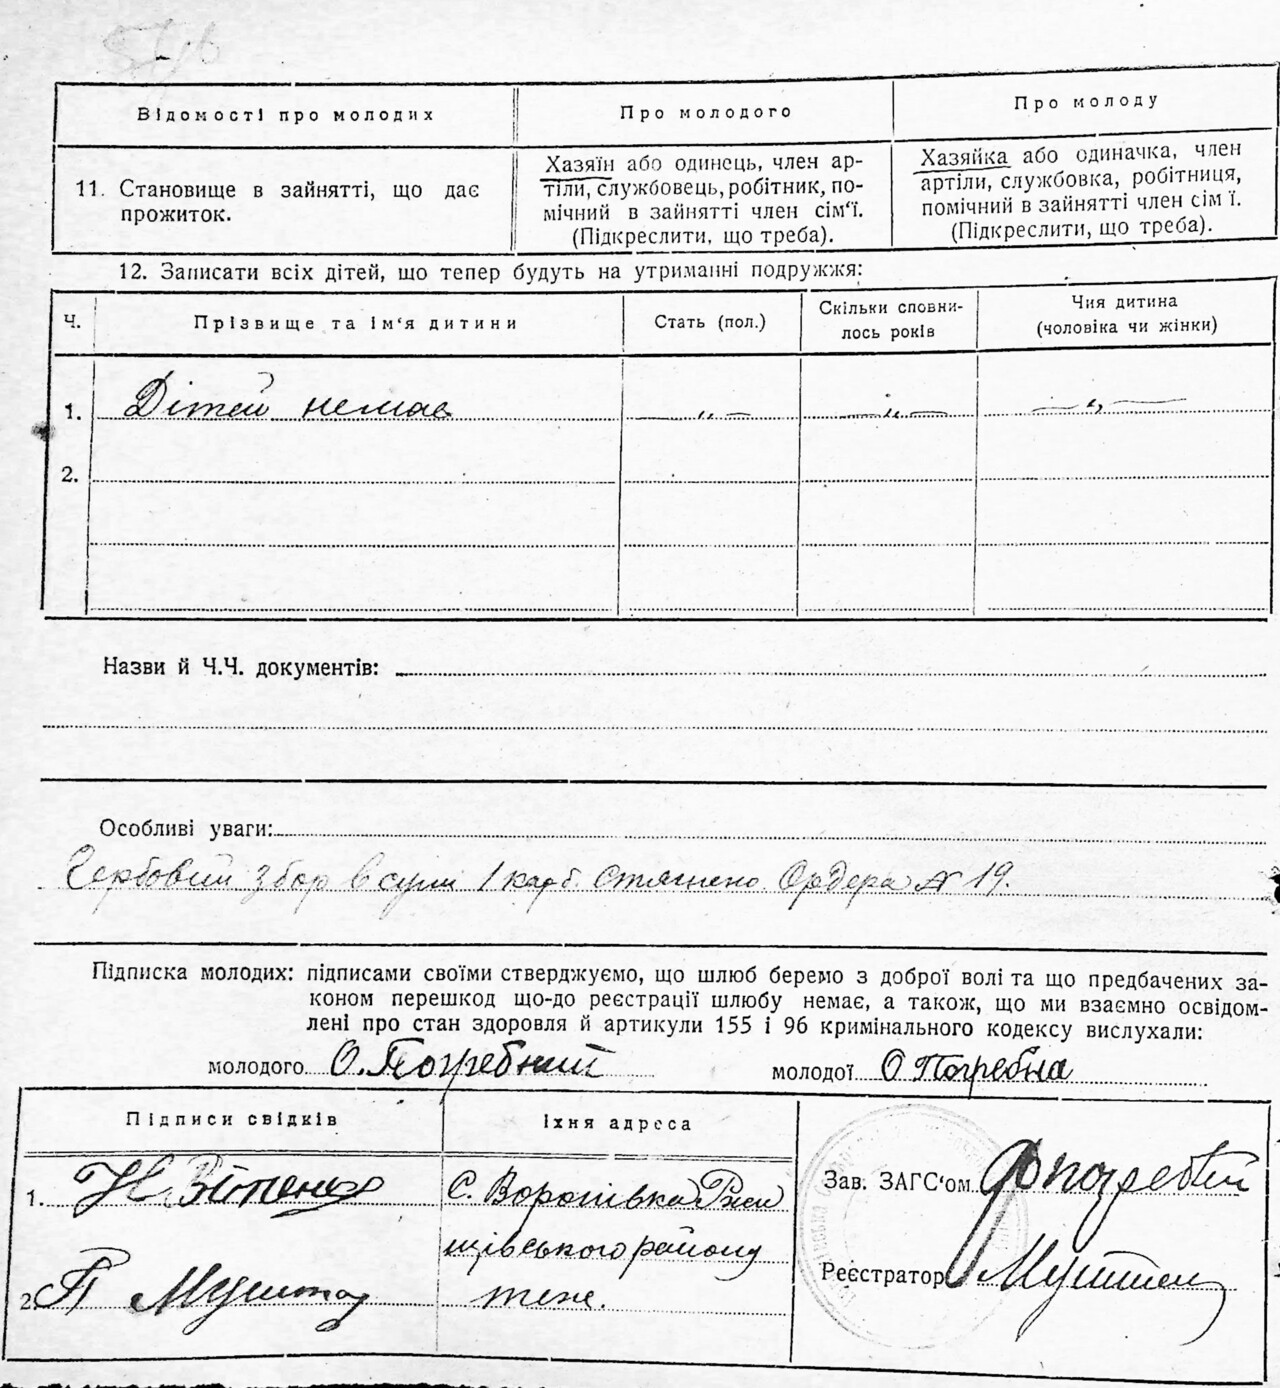 Відомості про молодих
Про молодого
Про молоду
11. Становище в зайнятті, що дає
прожиток.
Хазяїн або одинець, член ар-
тіли, службовець, робітник, по-
мічний в зайнятті член сім‘ї.
(Підкреслити, що треба).
Хазяйка або одиначка, член
артіли, службовка, робітниця,
помічний в зайнятті член сім ї.
(Підкреслити, що треба).
12. Записати всіх дітей, що тепер будуть на утриманні подружжя:
Ч.
Прізвище та ім‘я дитини
Стать (пол.)
Скільки сповни-
лось років
Чия дитина
(чоловіка чи жінки)
1. Дітей немає — „ — — „ — — „ —
2.
Назви й Ч.Ч. документів:
Особливі уваги:
Гербовий збор в сумі 1 карб. стягнено. Ордера № 19.
Підписка молодих: підписами своїми стверджуємо, що шлюб беремо з доброї волі та що предбачених за-
коном перешкод що-до реєстрації шлюбу немає, а також, що ми взаємно освідом-
лені про стан здоровля й артикули 155 і 96 кримінального кодексу вислухали:
молодого О. Погребний молодої О Погребна
Підписи свідків
Їхня адреса
1.
С. Воропівка Ржи
щівського району
2. П Мушта
теж.
Зав. ЗАГС‘ом Погребний
Реєстратор